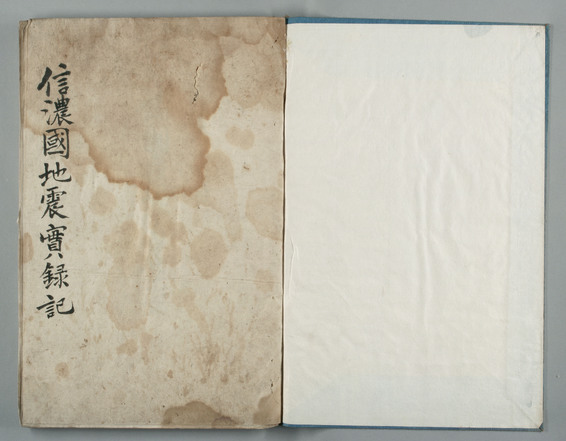 信濃國地震實録記